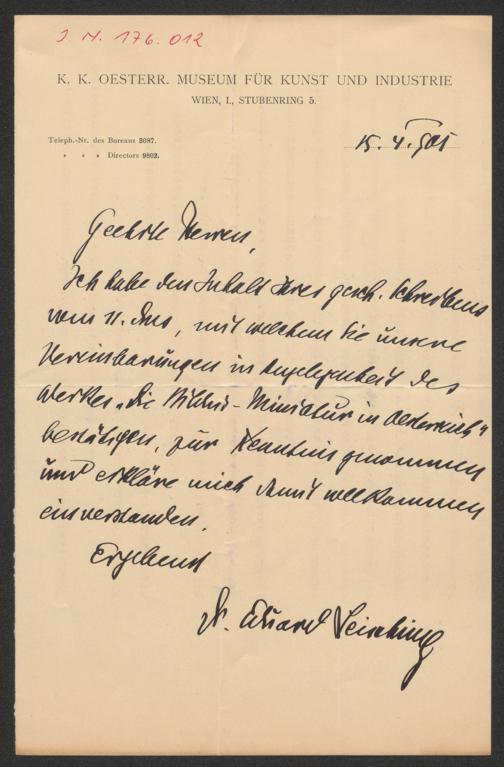 J. N. 176.012
K. K. OESTERR. MUSEUM FÜR KUNST UND INDUSTRIE
WIEN, I., STUBENRING 5.
Teleph.-Nr. des Bureaus 3087.
» » » Directors 9802.
15. 4. 905
Geehrte Herren,
Ich habe den Inhalt Ihres gesch. Schreibens
vom 11. dms, mit welchem Sie unsere
Vereinbarungen in Angelegenheit des
Werkes „Die Bildnis-Miniatur in Oesterreich"
bestätigen, zur Kenntnis genommen
und erkläre mich damit vollkommen
einverstanden.
Ergebenst
Dr. Eduard Leisching